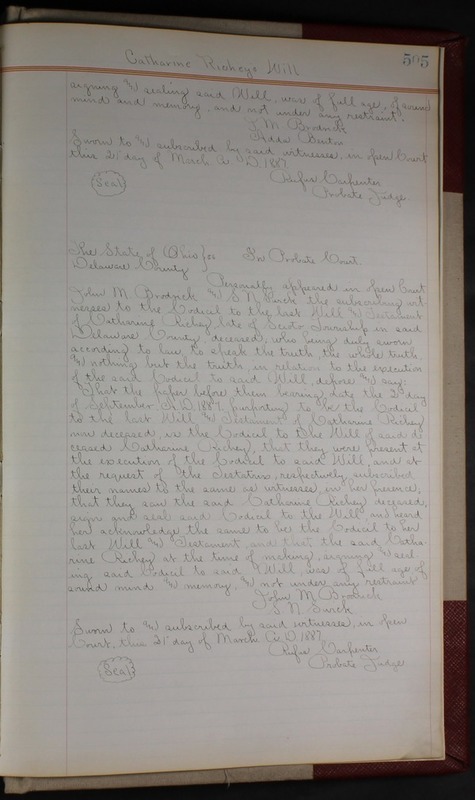 Catharine Richeys Will
505
signing & sealing said Will, was of full age, of sound
mind and memory, and not under any restraint.
J. M. Brodrick
Adda Buxton
Sworn to & subscribed by said witnesses, in open Court
this 21st day of March A.D. 1887.
Rufus Carpenter
Probate Judge
Seal
The State of Ohio } ss In Probate Court.
Delaware County
Personally appeared in open Court
John M. Brodrick & S. N. the subscribing wit-
nesses to the Codicil to the last Will & Testament
of Catharine Richey late of Scioto Township in said
Delaware County deceased, who being duly sworn
according to law to speak the truth, the whole truth
& nothing but the truth, in relation to the execution
of the said Codicil to said Will, depose & say:
That the paper before them bearing date the day
of September A.D. 188 purporting to be the Codicil
to the last Will & Testament of Catharine Richey
now deceased, is the Codicil to the Will of said de
ceased Catharine Richey, that they were present at
the execution of the Codicil to said Will, and at
the request of the testatrix, respectively subscribed
their names to the same as witnesses in her presence,
that they saw the said Catharine Richey deceased,
sign and seal said Codicil to the Will and heard
her acknowledge the same to be the Codicil to her
last Will & Testament, and that the said Catha-
rine Richey at the time of making, signing & seal
ing said Codicil to said Will, was of full age, of
sound mind & memory, & not under any restraint
John M. Brodrick
S. N.
Sworn to & subscribed by said witnesses, in open
Court, this 21st day of March A.D. 1887.
Rufus Carpenter
Probate Judge
Seal